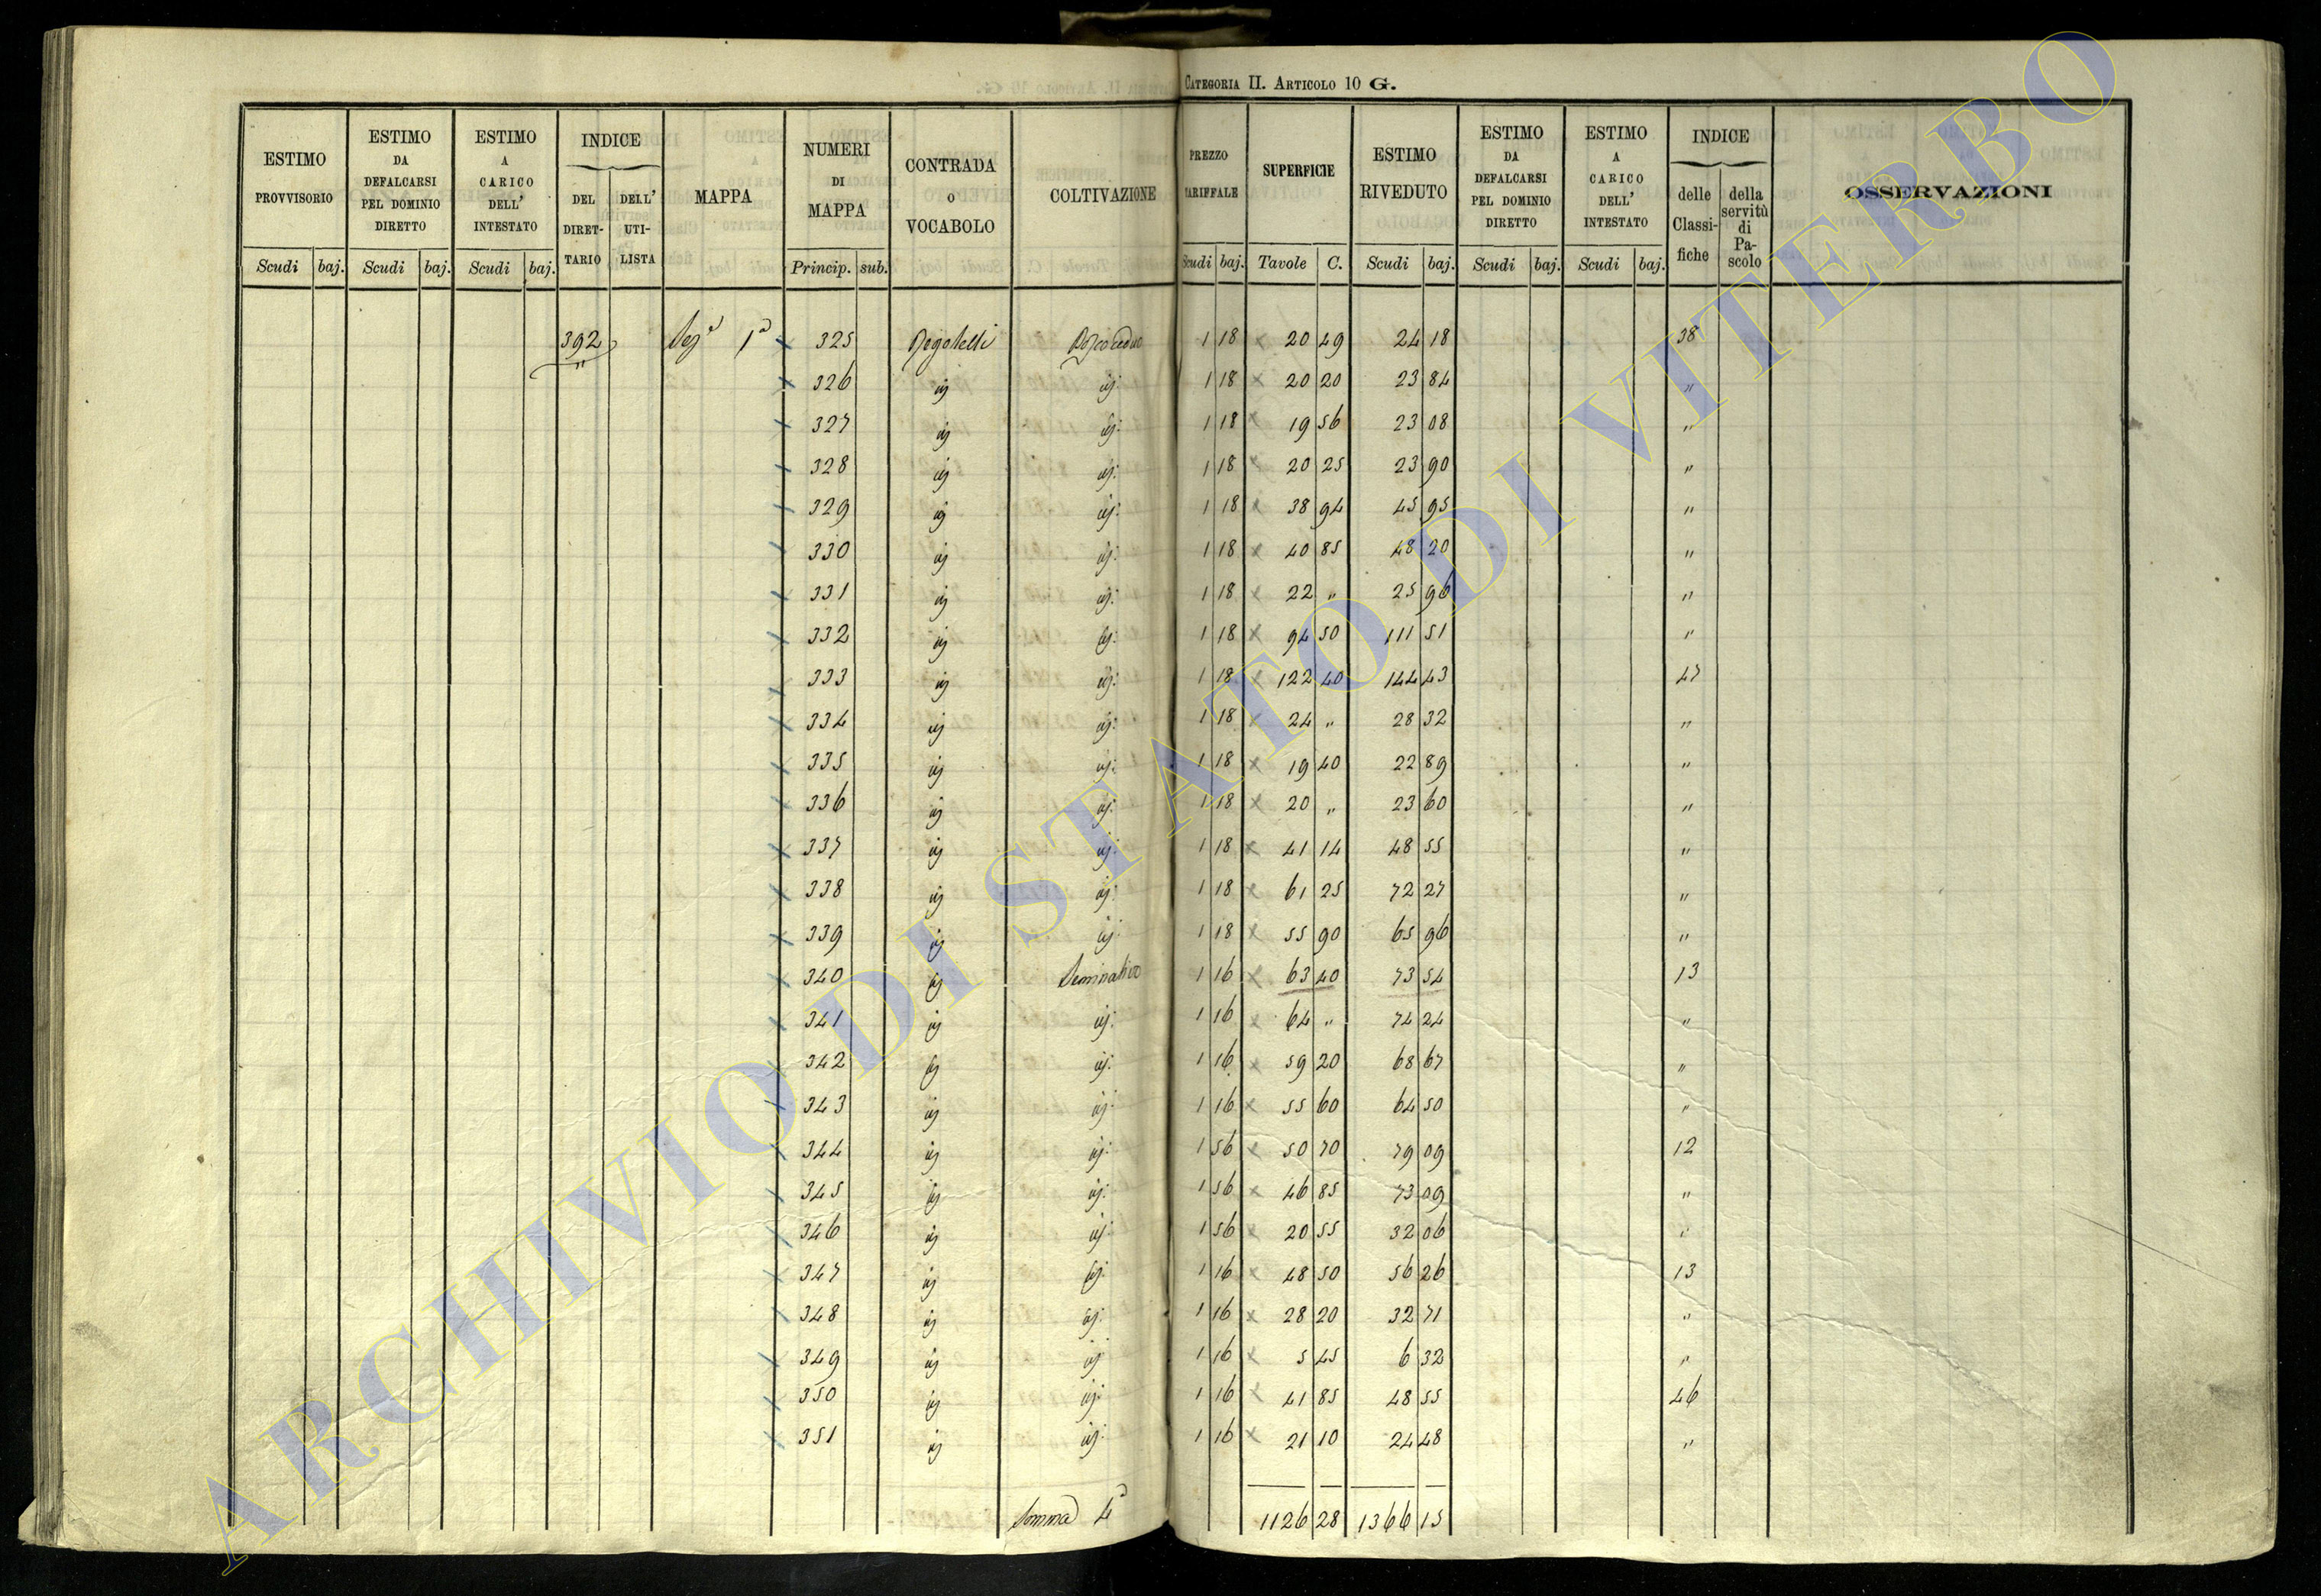 CATEGORIA II. ARTICOLO 10 G.
ESTIMO PROVVISORIO | ESTIMO DA DEFALCARSI PEL DOMINIO DIRETTO | ESTIMO A CARICO DELL' INTESTATO | INDICE DEL DIRETTARIO | DELL' UTILISTA | MAPPA | NUMERI DI MAPPA | CONTRADA O VOCABOLO | COLTIVAZIONE | PREZZO TARIFFALE | SUPERFICIE | ESTIMO RIVEDUTO | ESTIMO DA DEFALCARSI PEL DOMINIO DIRETTO | ESTIMO A CARICO DELL' INTESTATO | INDICE delle Classifiche | della servitù di Pascolo | OSSERVAZIONI
Scudi | baj. | Scudi | baj. | Scudi | baj. | Princip. | sub. | Scudi | baj. | Tavole | C. | Scudi | baj. | Scudi | baj. | Scudi | baj.
392 | Sez.a 1a | 325 | 1 18 | 20 49 | 24 18 | 38
" | 326 | id | id: | 1 18 | 20 20 | 23 84 | "
327 | id | id: | 1 18 | 19 56 | 23 08 | "
328 | id | id: | 1 18 | 20 25 | 23 90 | "
329 | id | id: | 1 18 | 38 94 | 45 95 | "
330 | id | id: | 1 18 | 40 85 | 48 20 | "
331 | id | id: | 1 18 | 22 " | 25 96 | "
332 | id | id: | 1 18 | 94 50 | 111 51 | "
333 | id | id: | 1 18 | 122 40 | 144 43 | 47
334 | id | id: | 1 18 | 24 " | 28 32 | "
335 | id | id: | 1 18 | 19 40 | 22 89 | "
336 | id | id: | 1 18 | 20 " | 23 60 | "
337 | id | id: | 1 18 | 41 14 | 48 55 | "
338 | id | id: | 1 18 | 61 25 | 72 27 | "
339 | id | id: | 1 18 | 55 90 | 65 96 | "
340 | id | Seminativo | 1 16 | 63 40 | 73 54 | 13
341 | id | id: | 1 16 | 64 " | 74 24 | "
342 | id | id: | 1 16 | 59 20 | 68 67 | "
343 | id | id: | 1 16 | 55 60 | 64 50 | "
344 | id | id: | 1 56 | 50 70 | 79 09 | 12
345 | id | id: | 1 56 | 46 85 | 73 09 | "
346 | id | id: | 1 56 | 20 55 | 32 06 | "
347 | id | id: | 1 16 | 48 50 | 56 26 | 13
348 | id | id: | 1 16 | 28 20 | 32 71 | "
349 | id | id | 1 16 | 5 45 | 6 32 | "
350 | id | id: | 1 16 | 41 85 | 48 55 | 46
351 | id | id: | 1 16 | 21 10 | 24 48 | "
Somma 4a | 1126 28 | 1366 15
ARCHIVIO DI STATO DI VITERBO